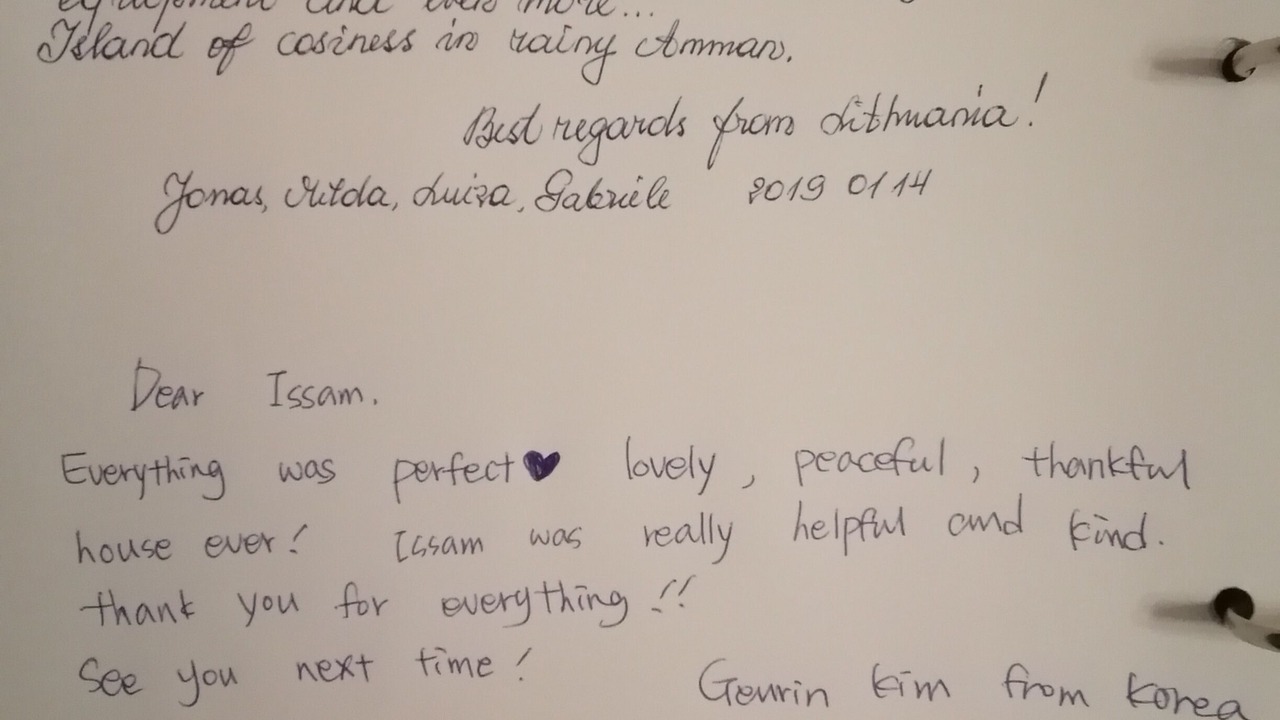 equipment and even more...
Island of cosiness in rainy Amman.
Best regards from Lithuania!
Jonas, Milda, Luiza, Gabrielė 2019 01 14
Dear Issam.
Everything was perfect♥ lovely, peaceful, thankful
house ever! Issam was really helpful and kind.
thank you for everything!!
See you next time!
Geurin Kim from Korea